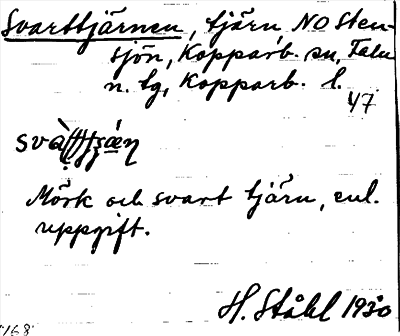 Svarttjärnen, tjärn, NO Sten-
sjön, Kopparb. sn, Falu
n. tg, Kopparb. l.
47
Mörk och svart tjärn, enl.
uppgift.
H. Ståhl 1930